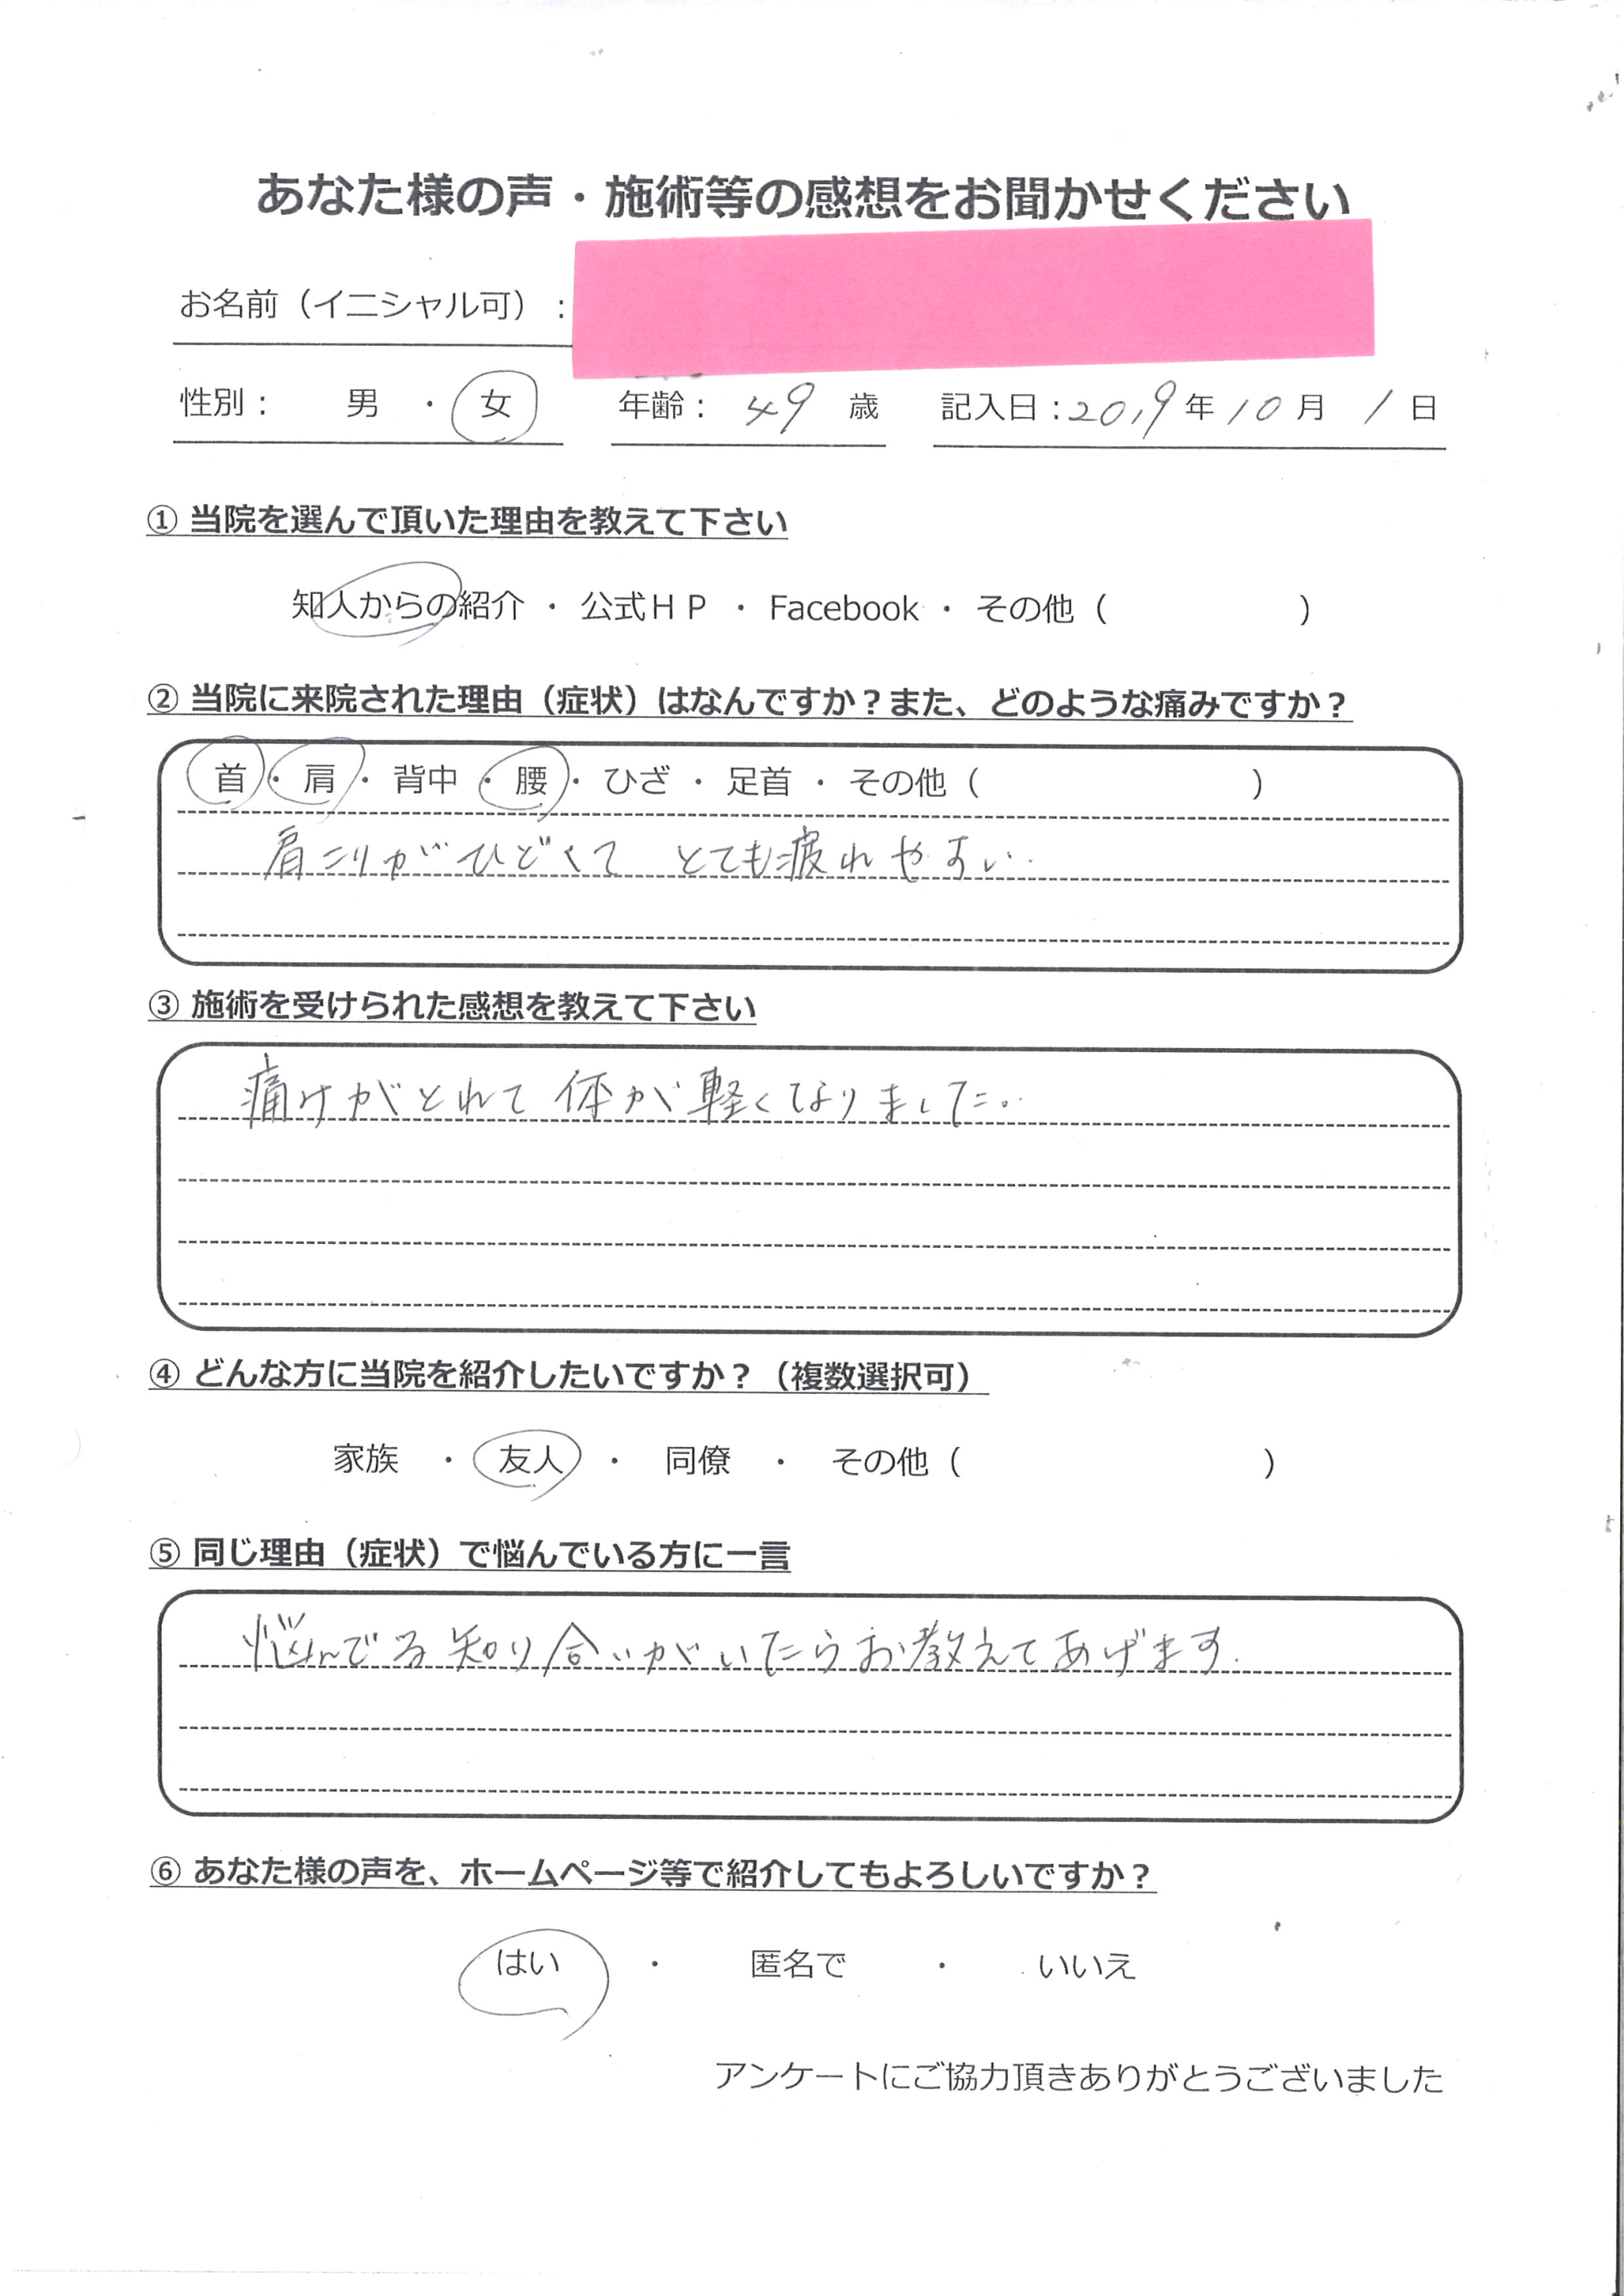 あなた様の声・施術等の感想をお聞かせください
お名前（イニシャル可）：
性別： 男 ・ 女 年齢： 49 歳 記入日：2019年10月 1 日
① 当院を選んで頂いた理由を教えて下さい
知人からの紹介 ・ 公式ＨＰ ・ Facebook ・ その他（ ）
② 当院に来院された理由（症状）はなんですか？また、どのような痛みですか？
首 ・ 肩 ・ 背中 ・ 腰 ・ ひざ ・ 足首 ・ その他（ ）
肩こりがひどくて とても疲れやすい.
③ 施術を受けられた感想を教えて下さい
痛けがとれて 体が軽くなりました。
④ どんな方に当院を紹介したいですか？（複数選択可）
家族 ・ 友人 ・ 同僚 ・ その他（ ）
⑤ 同じ理由（症状）で悩んでいる方に一言
悩んでる知り合いがいたらお教えてあげます.
⑥ あなた様の声を、ホームページ等で紹介してもよろしいですか？
はい ・ 匿名で ・ いいえ
アンケートにご協力頂きありがとうございました